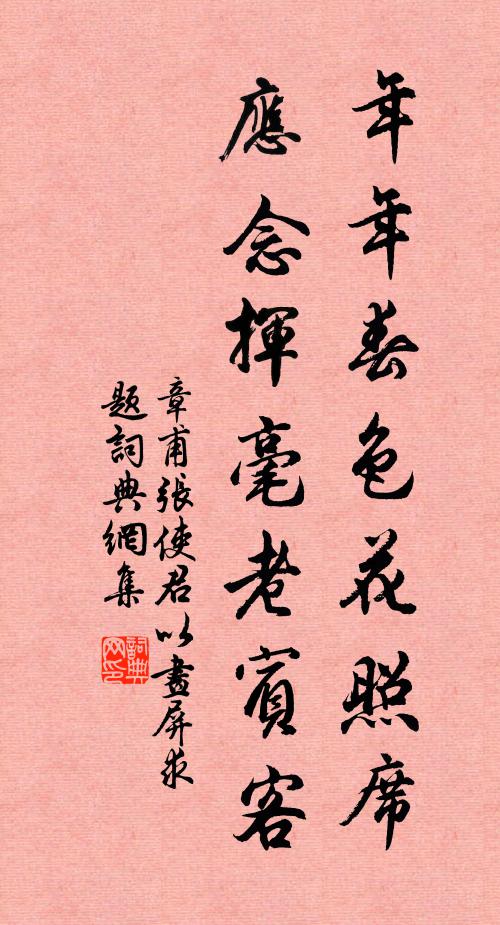 年年春色花照席
應念揮毫老賓客
章甫張使君以畫屏求
題詞典網集
詞典網印